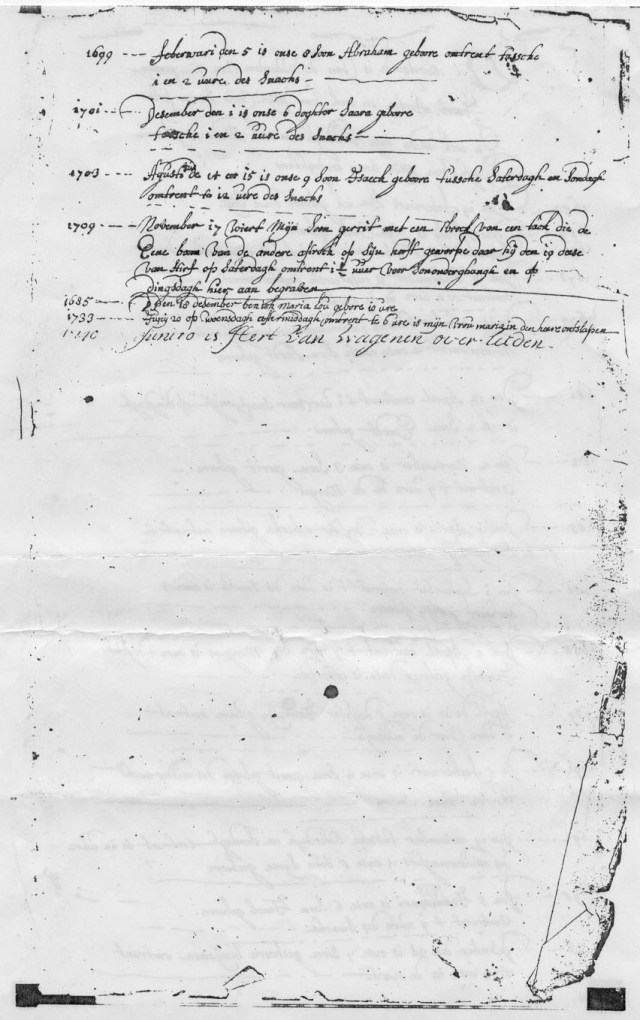 1699 --- Feberwari den 5 is onse 8 soon Abraham geboore omtrent tussche
1 en 2 uure des snachs
1701 --- Desember den 1 is onse 6 doghter Saara geboore
tussche 1 en 2 uure des snachs
1703 --- Agusti den 14 en 15 is onse 9 soon Isaeck geboore tussche Saterdagh en Sondagh
omtrent te 12 uere des snachs
1709 --- November 17 wiert Mijn soon gerrit met een van een tack die de
Eene boom van de andere op sijn hooft geworpe daar hij den 19 dese
van stirf op Saterdagh omtrent 1½ uuer voor Sononderghangh en op
dingsdagh hier aan begraben
1685 den 18 desember ben ick maria lou gebore 10 ure
1733 --- Junij 20 op woensdagh aftermiddagh omtrent te 6 ure is mijn vrou maria in den heere ontslapen
Juni 10 is Aert Van Wagenen over leiden